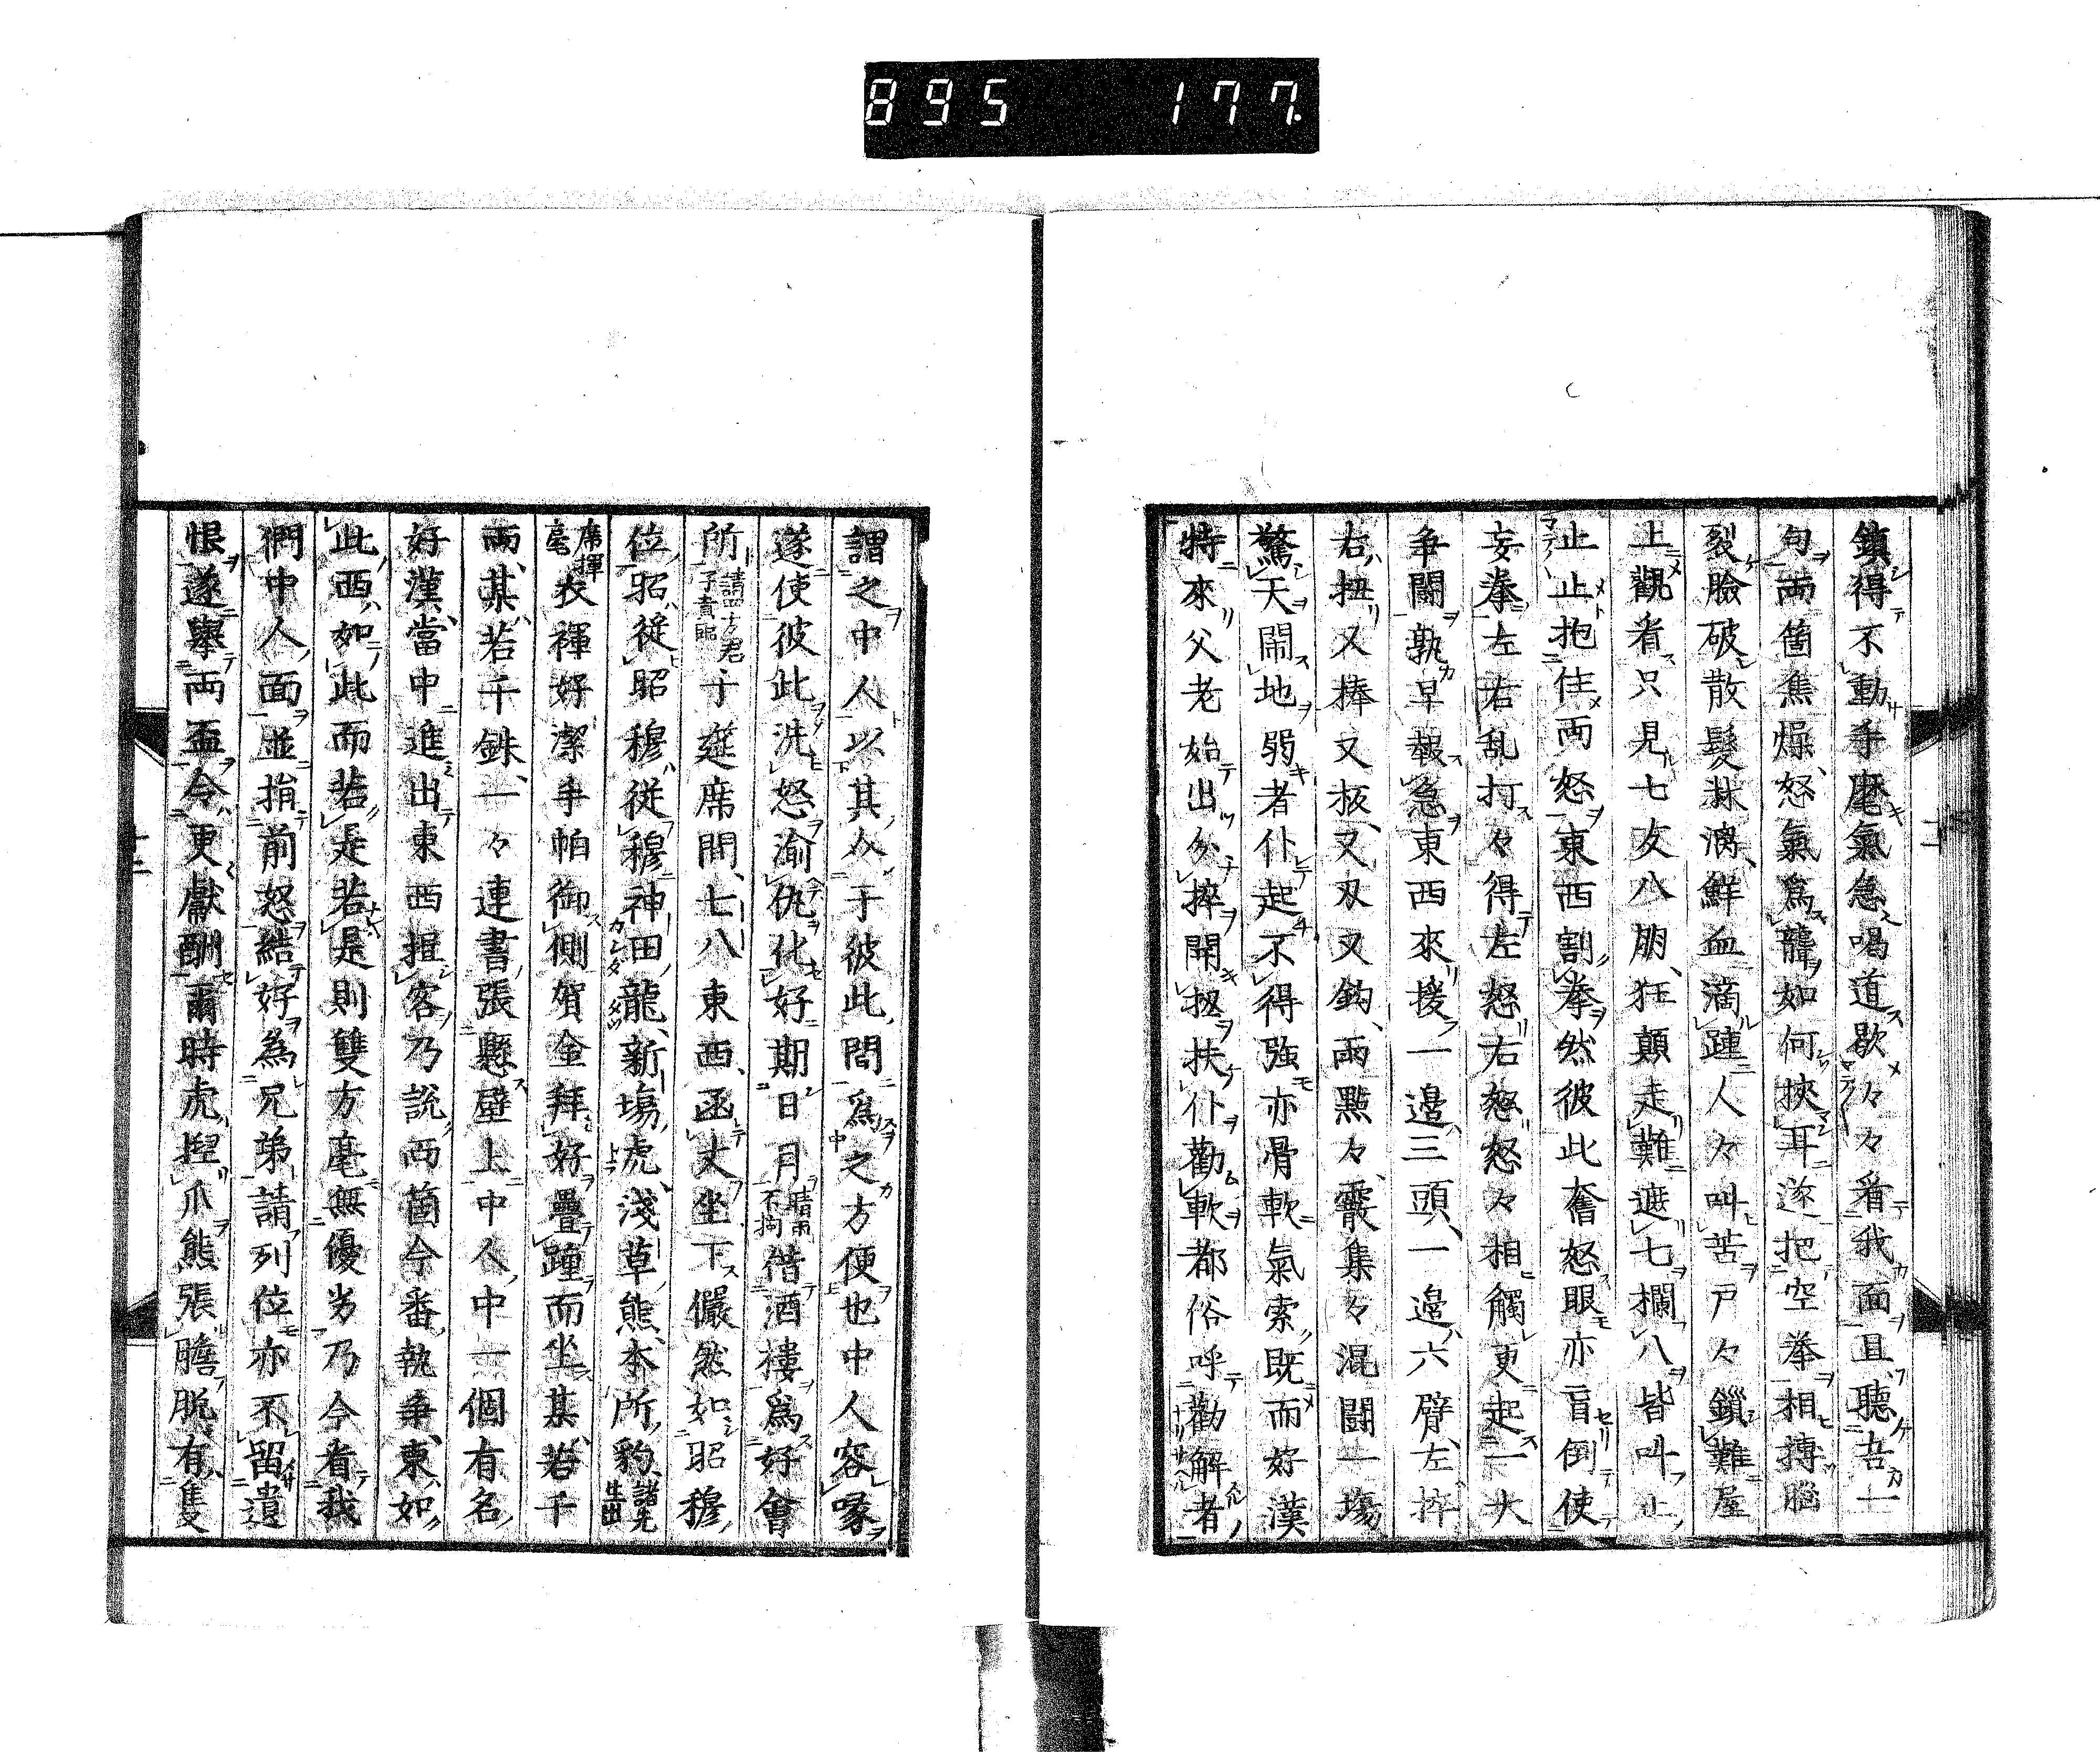 895 177
鎮得不動手麾氣急喝道歇々々看我面且聽吾一
句両箇焦燥怒氣爲聾如何挾耳遂把空拳相摶腦
裂臉破散髮淋漓鮮血滴踵人々叫苦戸々鎖難屋
上觀看只見七友八朋狂顛走難遮七欄八皆叫止
止止抱住両怒東西割拳然彼此奮怒眼亦盲倒使
妄拳左右乱打々得左怒右怒怒々相觸更起一大
争闘孰早報急東西來援一邉三頭一邉六臂左捽
右扭又棒又扳又刄又鈎両點々霰集々混闘一塲
驚天閙地弱者仆起不得強亦骨軟氣索既而好漢
特來父老始出分捽開拯扶仆勸軟都俗呼勸解者
謂之中人以其人于彼此間爲之方便也中人容喙
遂使彼此洗怒渝仇化好期日月晴雨不拘借酒樓爲好會
所請四方君子責臨于莚席間七八東西函丈坐下儼然如昭穆
位昭從昭穆従穆神田龍新塲虎淺草熊本所豹諸先生出
席揮毫衣褌好潔手帕御側賀金拜好疊踵而坐某若千
両某若千銖一々連書張懸壁上中人中一個有名
好漢當中進出東西揖客乃説両箇今番執争東如
此西如此而若是若是則雙方毫無優劣乃今者我
們中人面並揃前怒結好為兄弟請列位亦不留遺
恨遂擧両盃令更獻酬爾時虎揑爪熊張膽脱有隻